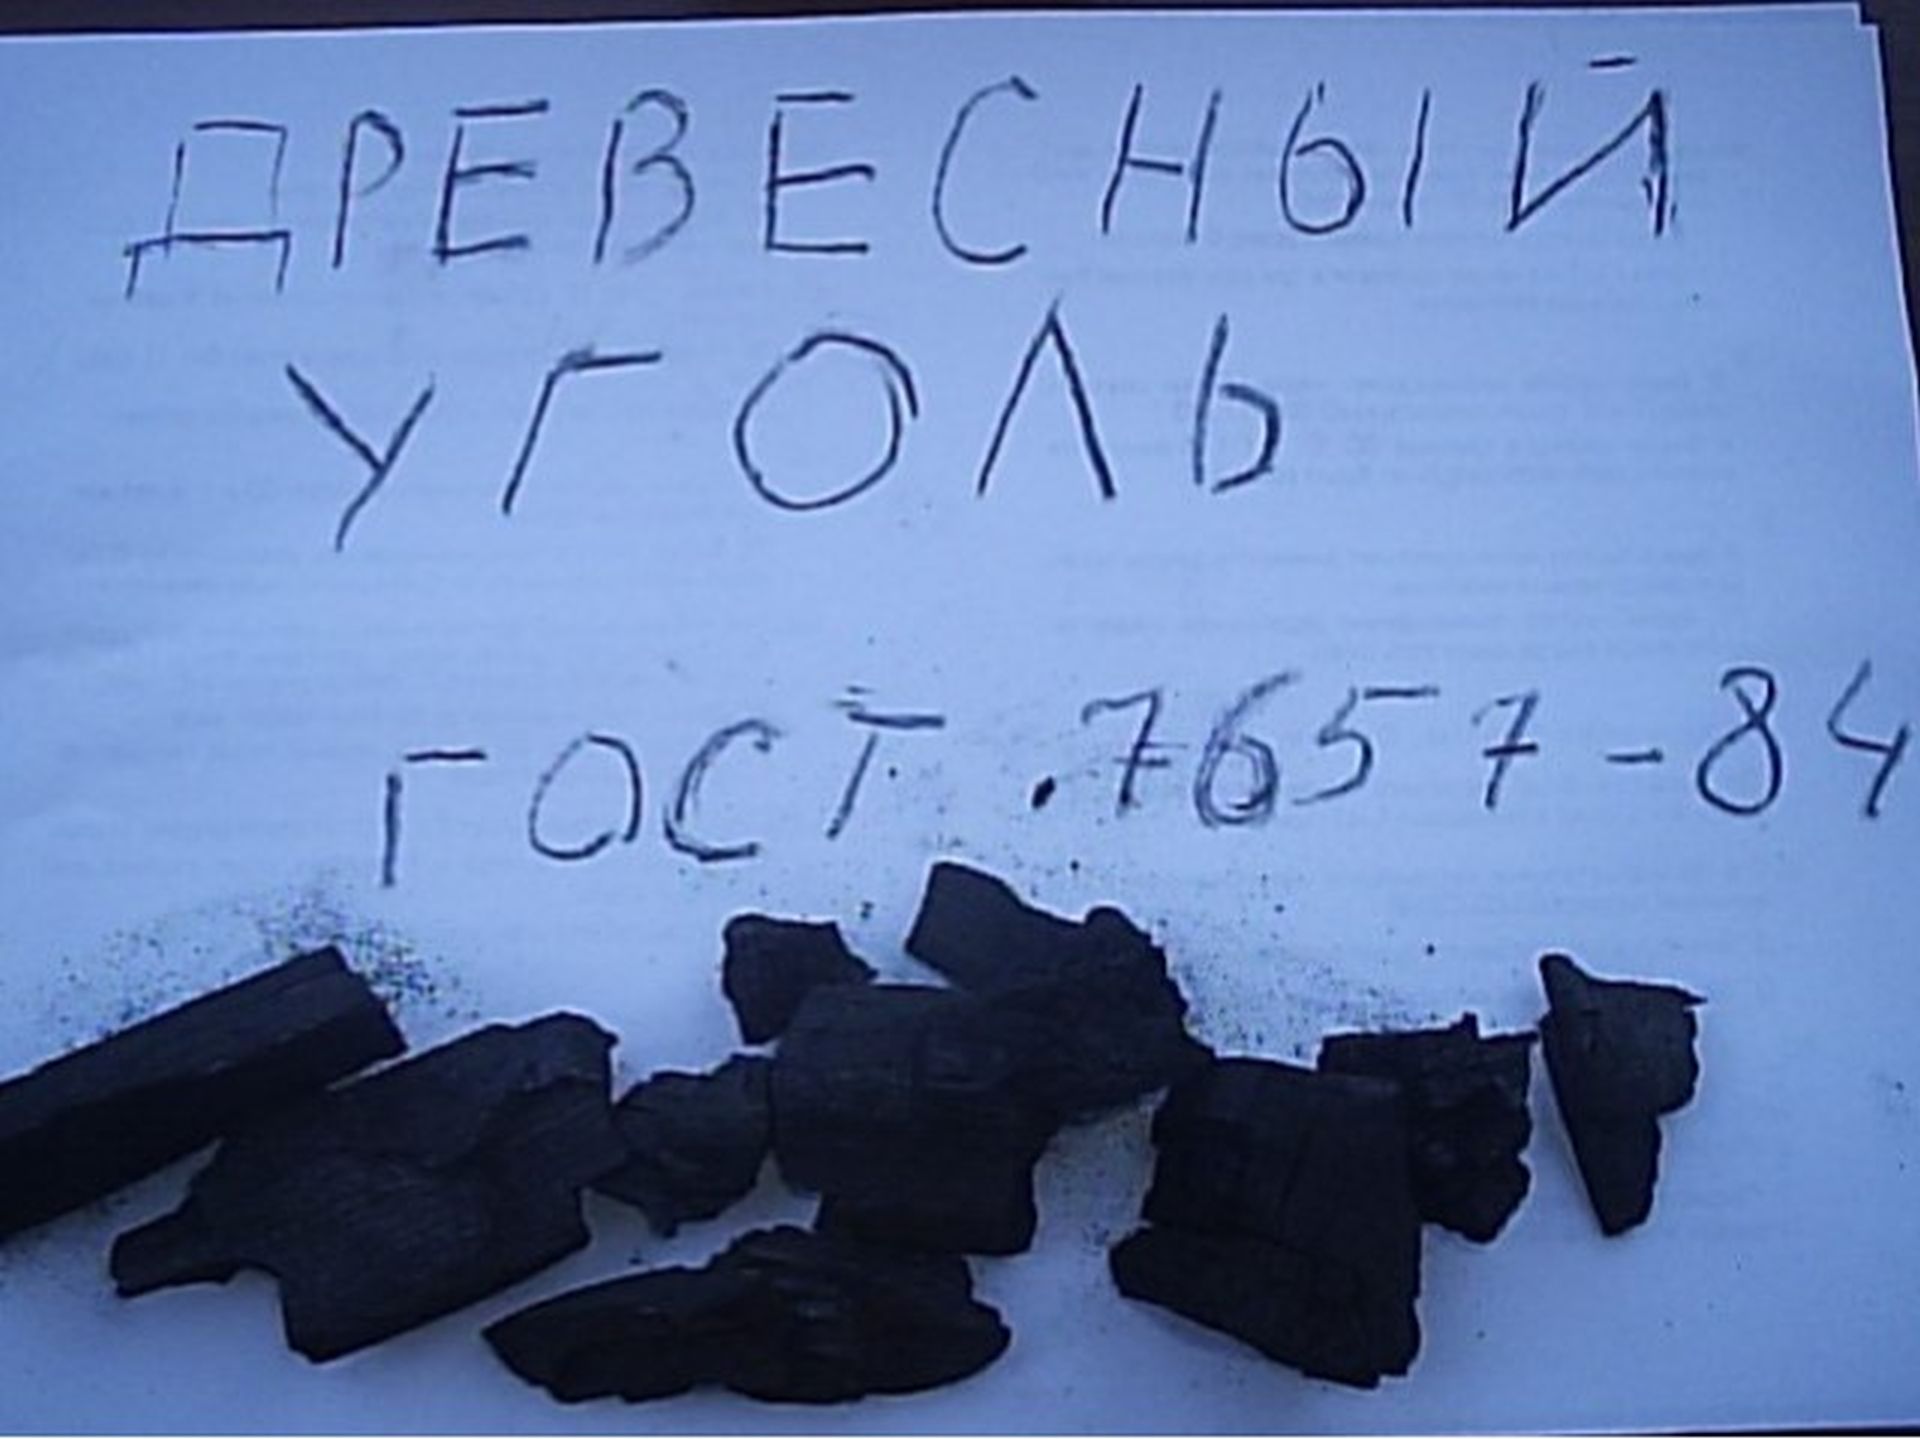 ДРЕВЕСНЫЙ
УГОЛЬ
ГОСТ .7657-84